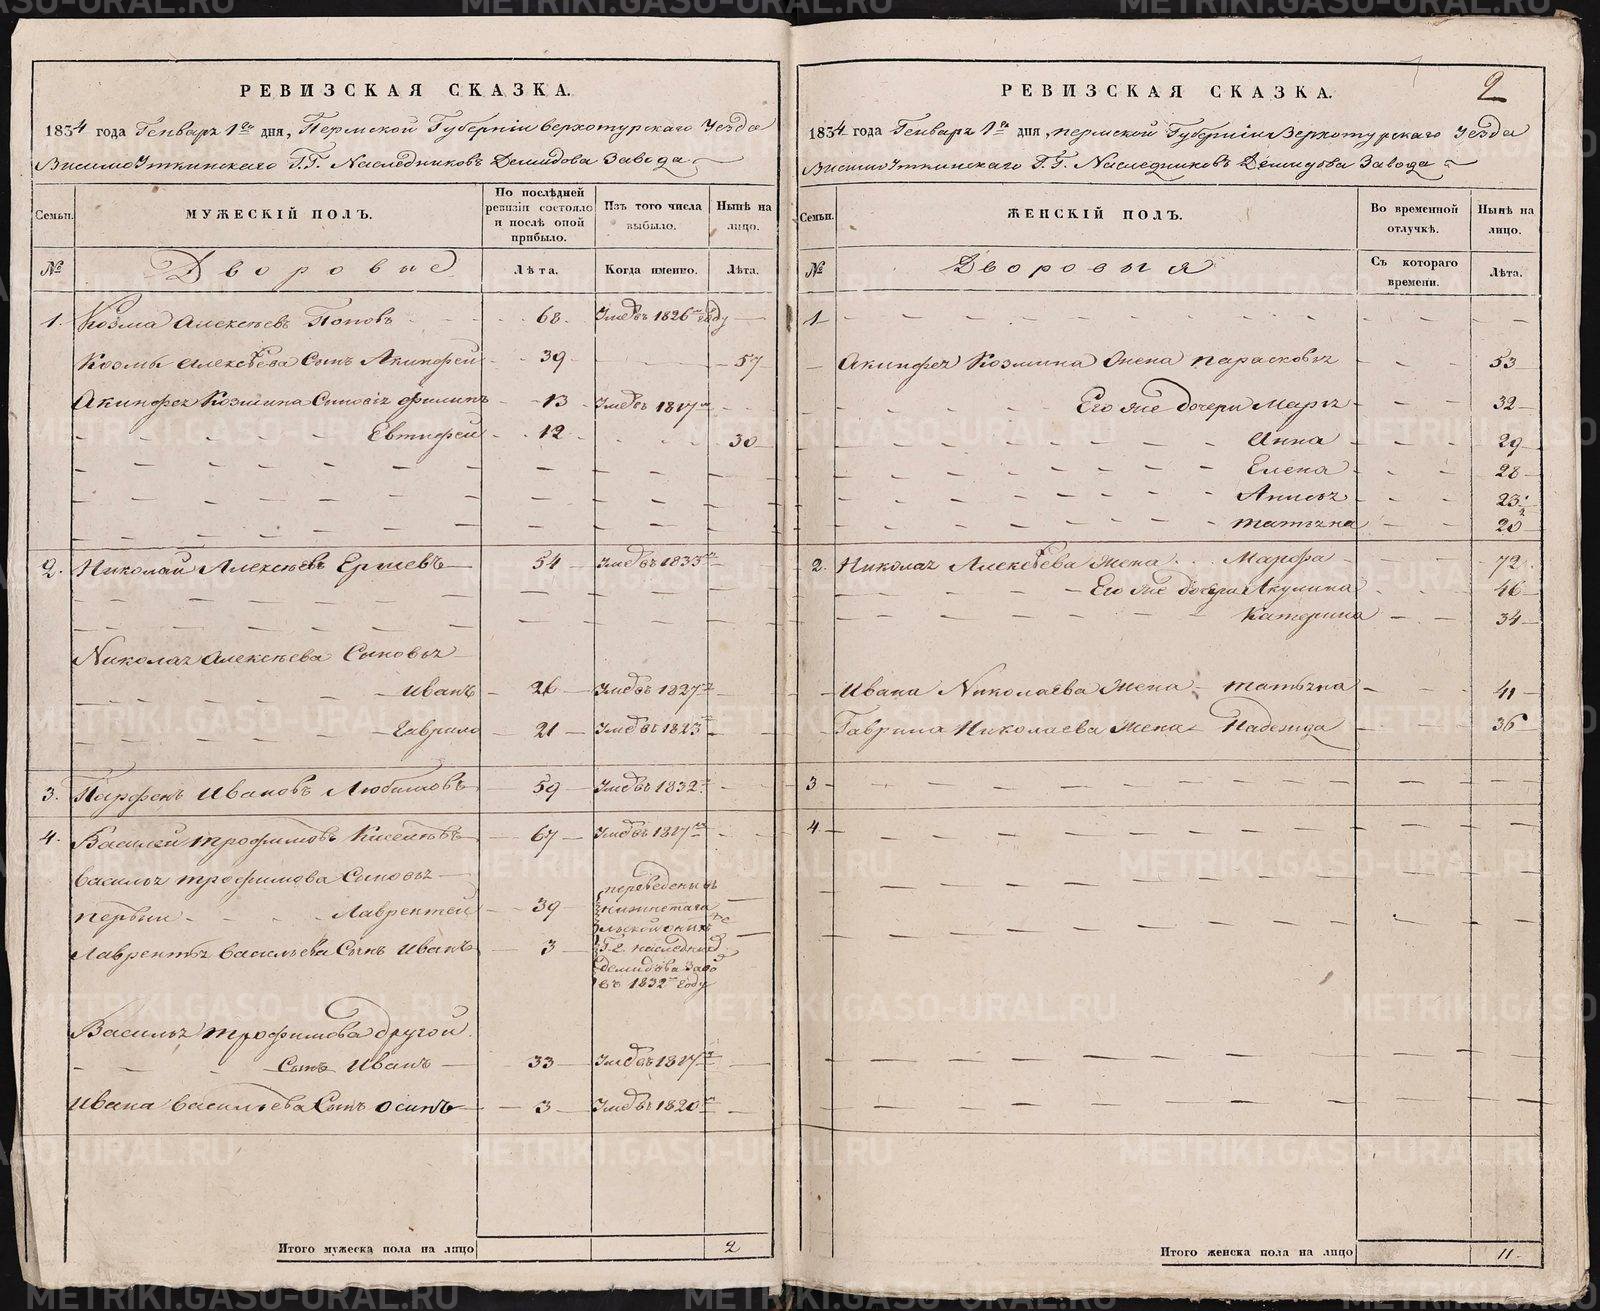 РЕВИЗСКАЯ СКАЗКА.
1834 года Генваря 1го дня, Пермской Губернiи Верхотурскаго Уезда
ВисимоУткинскаго Г.Г. Наследниковъ Демидова Завода
Семьи.
МУЖЕСКIЙ ПОЛЪ.
По послѣдней ревизiи состояло и послѣ оной прибыло.
Изъ того числа выбыло.
Нынѣ на лицо.
№
Дворовые
Лѣта.
Когда именно.
Лѣта.
1. Козма Алексѣевъ Поповъ 68 Умеръ въ 1826м году
Козмы Алексѣева Сынъ Акинфей 39 57
Акинфея Козмина Сыновья Филипъ 13 Умеръ въ 1817м
Евтифей 12 30
2. Николай Алексѣевъ Ершевъ 54 Умеръ въ 1833м
Николая Алексѣева Сыновья
Иванъ 26 Умеръ въ 1827м
Гаврило 21 Умеръ въ 1823м
3. Парфенъ Ивановъ Любимовъ 59 Умеръ въ 1832м
4. Василей Трофимовъ Киселевъ 67 Умеръ въ 1817м
Василья Трофимова Сыновья
первый Лаврентей 39 переведены въ нижнетаги
Лаврентья Васильева Сынъ Иванъ 3 Г.Г. наследник
Демидова Заво
въ 1832м году
Василья Трофимова другой
Сынъ Иванъ 33 Умеръ въ 1817м
Ивана Васильева Сынъ Осипъ 3 Умеръ въ 1820м
Итого мужеска пола на лицо 2
2
РЕВИЗСКАЯ СКАЗКА.
1834 года Генваря 1го дня, Пермской Губернiи Верхотурскаго Уезда
ВисимоУткинскаго Г.Г. Наследниковъ Демидова Завода
Семьи.
ЖЕНСКIЙ ПОЛЪ.
Во временной отлучкѣ.
Нынѣ на лицо.
№
Дворовыя
Съ котораго времени.
Лѣта.
1
Акинфея Козмина Жена Парасковья 53
Его же дочери Марья 32
Анна 29
Елена 28
Анисья 23
Татьяна 20
2. Николая Алексѣева Жена Марфа 72
Его же дочери Акулина 46
Катерина 34
Ивана Николаева Жена Татьяна 41
Гаврила Николаева Жена Надежда 36
3
4
Итого женска пола на лицо 11.
METRIKI.GASO-URAL.RU